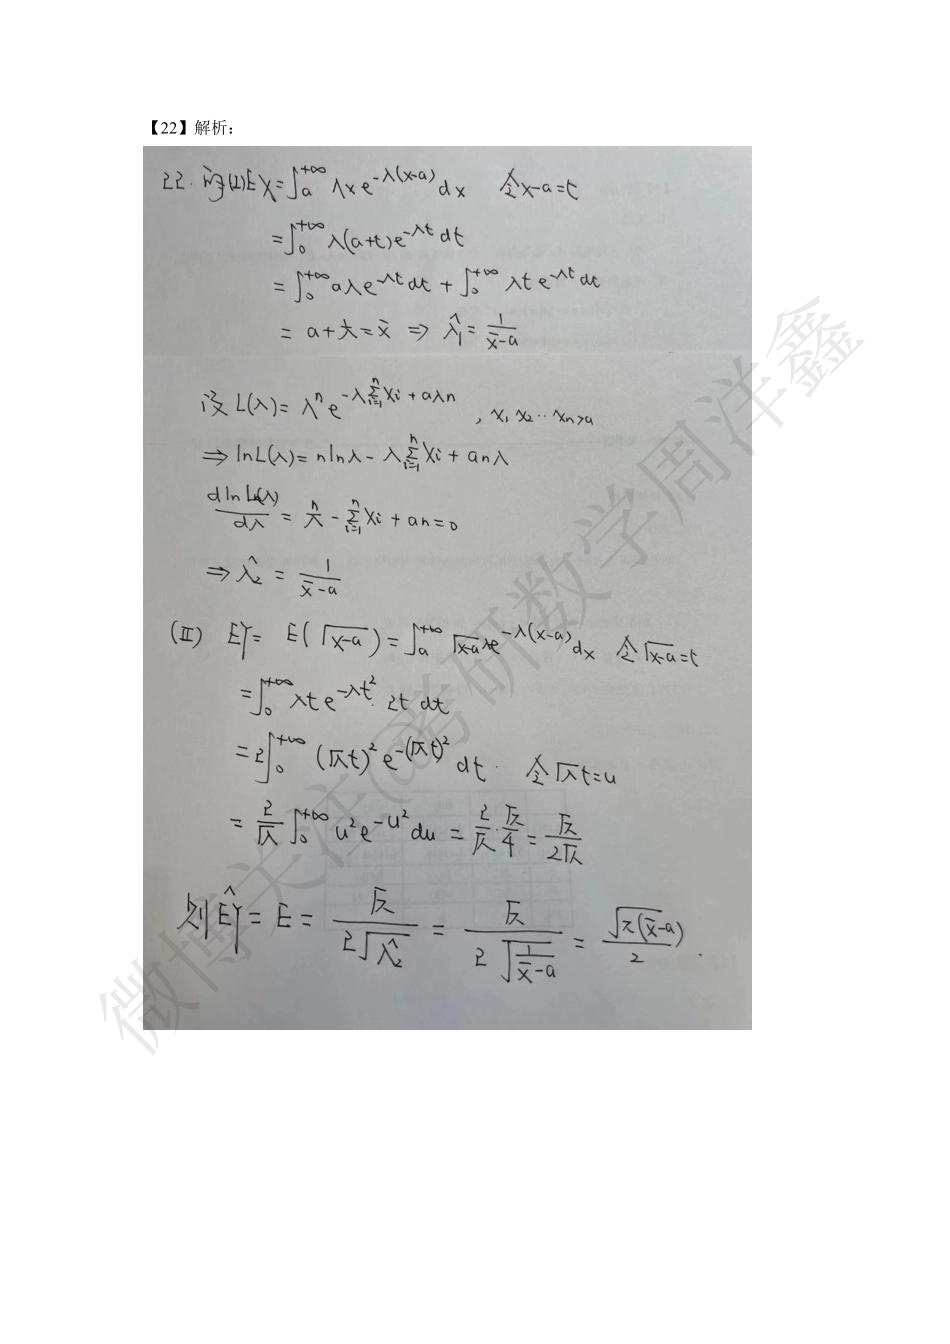 【22】解析：
22. 解(I)EX=∫_a^{+∞} λxe^{-λ(x-a)}dx 令x-a=t
=∫_0^{+∞} λ(a+t)e^{-λt}dt
=∫_0^{+∞} aλe^{-λt}dt + ∫_0^{+∞} λte^{-λt}dt
= a+1/λ=x̄ ⇒ λ̂₁=1/(x̄-a)
设 L(λ)= λⁿe^{-λ∑_{i=1}^{n}Xi+aλn}, x₁ x₂ ·· xn>a
⇒ lnL(λ)=nlnλ-λ∑_{i=1}^{n}Xi+anλ
dlnL(λ)/dλ = n/λ-∑_{i=1}^{n}Xi+an=0
⇒ λ̂₂ = 1/(x̄-a)
(II) EY= E(√(x-a))=∫_a^{+∞} √(x-a)λe^{-λ(x-a)}dx 令√(x-a)=t
=∫_0^{+∞} λte^{-λt²}·2t dt
=2∫_0^{+∞} (√λt)²e^{-(√λt)²}dt. 令√λt=u
= 2/√λ ∫_0^{+∞} u²e^{-u²}du = 2/√λ·√π/4=√π/(2√λ)
则ÊY=E= √π/(2√λ̂₂) = √π/(2√(1/(x̄-a))) = √(π(x̄-a))/2.
微博关注@考研数学周洋鑫